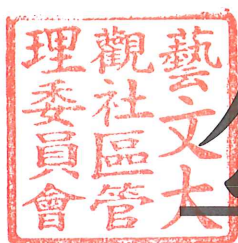 藝文大
觀社區管
理委員會